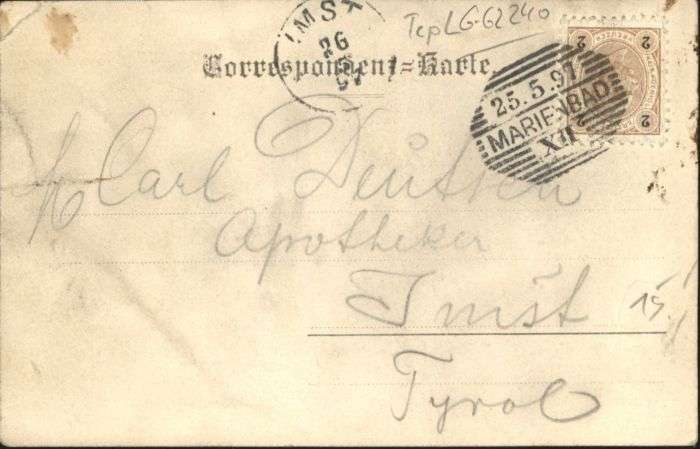 IMST
26
TepLG-G2240
Correspondenz=Karte.
2 2
2 2
25.5.97
MARIENBAD
XII
Karl Deutsch
Apotheker
Imst
15.
Tyrol